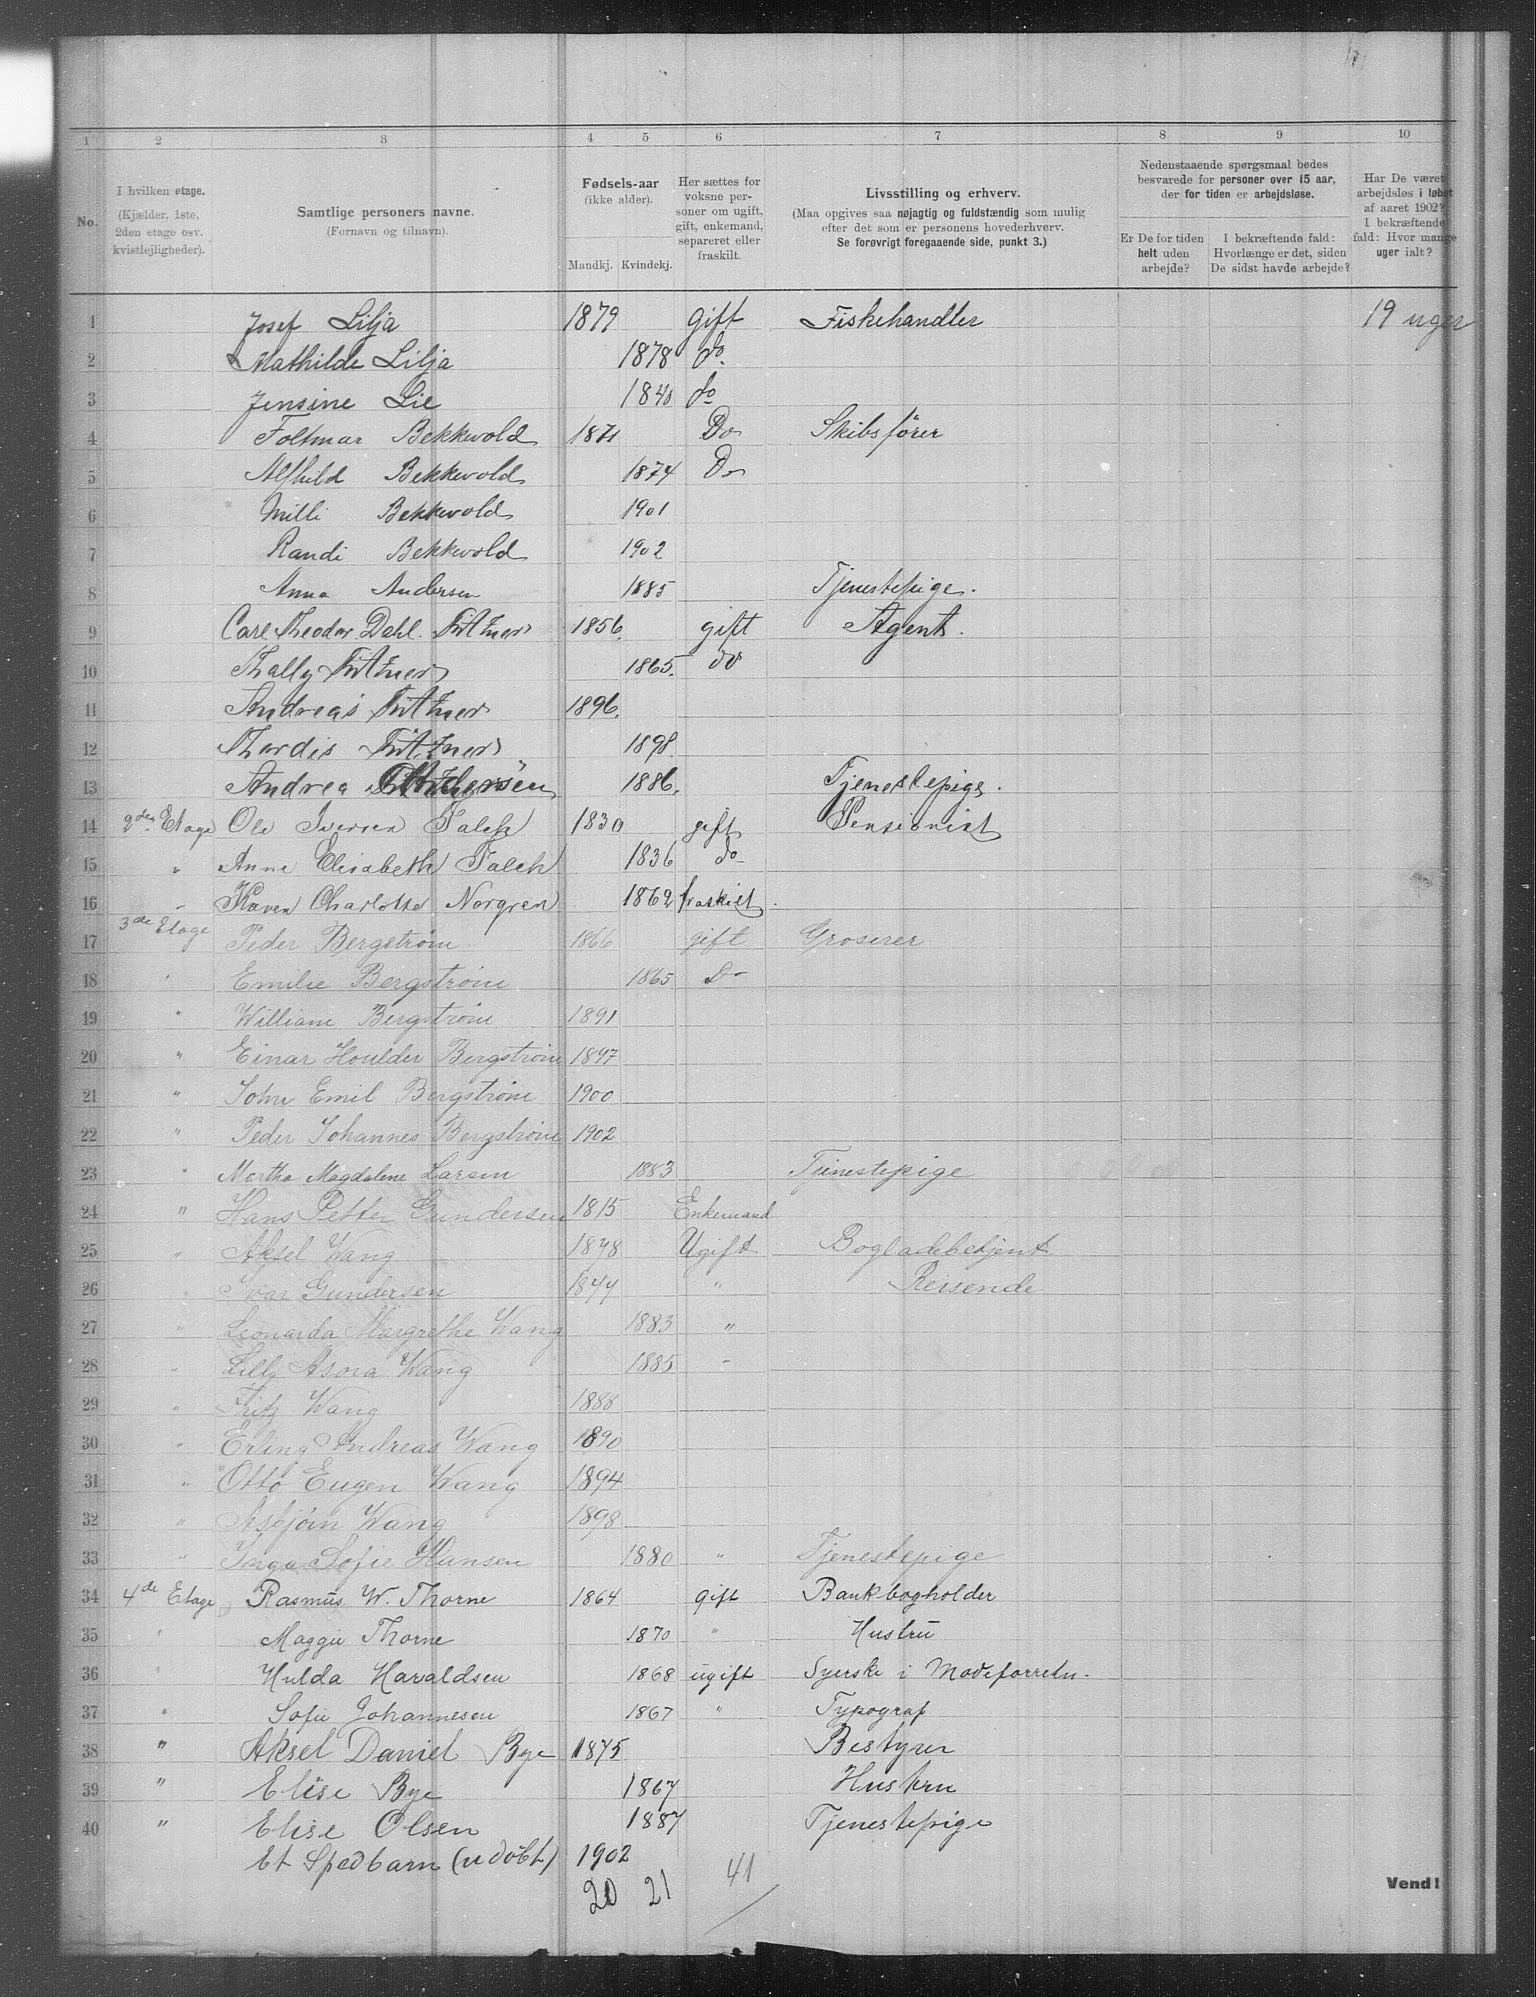 1 2 3 4 5 6 7 8 9 10
No. I hvilken etage. (Kjælder, 1ste, 2den etage osv. kvistlejligheder).
Samtlige personers navne. (Fornavn og tilnavn).
Fødsels-aar (ikke alder). Mandkj. Kvindekj.
Her sættes for voksne personer om ugift, gift, enkemand, separeret eller fraskilt.
Livsstilling og erhverv. (Maa opgives saa nøjagtig og fuldstændig som mulig efter det som er personens hovederhverv. Se forøvrigt foregaaende side, punkt 3.)
Nedenstaaende spørgsmaal bedes besvarede for personer over 15 aar, der for tiden er arbejdsløse.
Er De for tiden helt uden arbejde?
I bekræftende fald: Hvorlænge er det, siden De sidst havde arbejde?
Har De været arbejdsløs i løbet af aaret 1902? I bekræftende fald: Hvor mange uger ialt?
1 Josef Lilja 1879 gift Fiskehandler 19 uger
2 Mathilde Lilja 1878 do
3 Jensine Lie 1840 do
4 Foltmar Bekkevold 1871 Do Skibsfører
5 Alfhild Bekkevold 1874 Do
6 Milli Bekkevold 1901
7 Randi Bekkevold 1902
8 Anna Andersen 1885 Tjenestepige.
9 Carl Theodor Dahl. Fritzner 1856. gift Agent.
10 Thally Fritzner 1865. do
11 Andreas Fritzner 1896.
12 Thordis Fritzner 1898.
13 Andrea Andersen 1886. Tjenestepige.
14 2den Etage Ole Iversen Falch 1830 gift Pensionist
15 " Anne Elisabeth Falch 1836 do
16 " Karen Charlotte Norgren 1862 fraskilt.
17 3de Etage Peder Bergstrøm 1866 gift Groserer
18 " Emilie Bergstrøm 1865 Do
19 " William Bergstrøm 1891
20 " Einar Houlder Bergstrøm 1897
21 " John Emil Bergstrøm 1900
22 " Peder Johannes Bergstrøm 1902
23 " Martha Magdalene Larsen 1883 Tjenestepige
24 " Hans Petter Gundersen 1815 Enkemand
25 " Aksel Wang 1878 Ugift Bogladebetjent
26 " Ivar Gundersen 1877 " Reisende
27 " Leonarda Margrethe Wang 1883 "
28 " Lilly Asora Wang 1885 "
29 " Fritz Wang 1888
30 " Erling Andreas Wang 1890
31 " Otto Eugen Wang 1894
32 " Asbjørn Wang 1898
33 " Inga Sofie Hansen 1880 " Tjenestepige
34 4de Etage Rasmus W. Thorne 1864 gift Bankbogholder
35 " Maggie Thorne 1870 " Hustru
36 " Hulda Havaldsen 1868 ugift Syerske i Modeforretn.
37 " Sofie Johannesen 1867 " Typograf
38 " Aksel Daniel Bye 1875 Bestyrer
39 " Elise Bye 1867 Hustru
40 " Elise Olsen 1887 Tjenestepige
Et Spedbarn (udøbt) 1902
20 21 41
Vend!